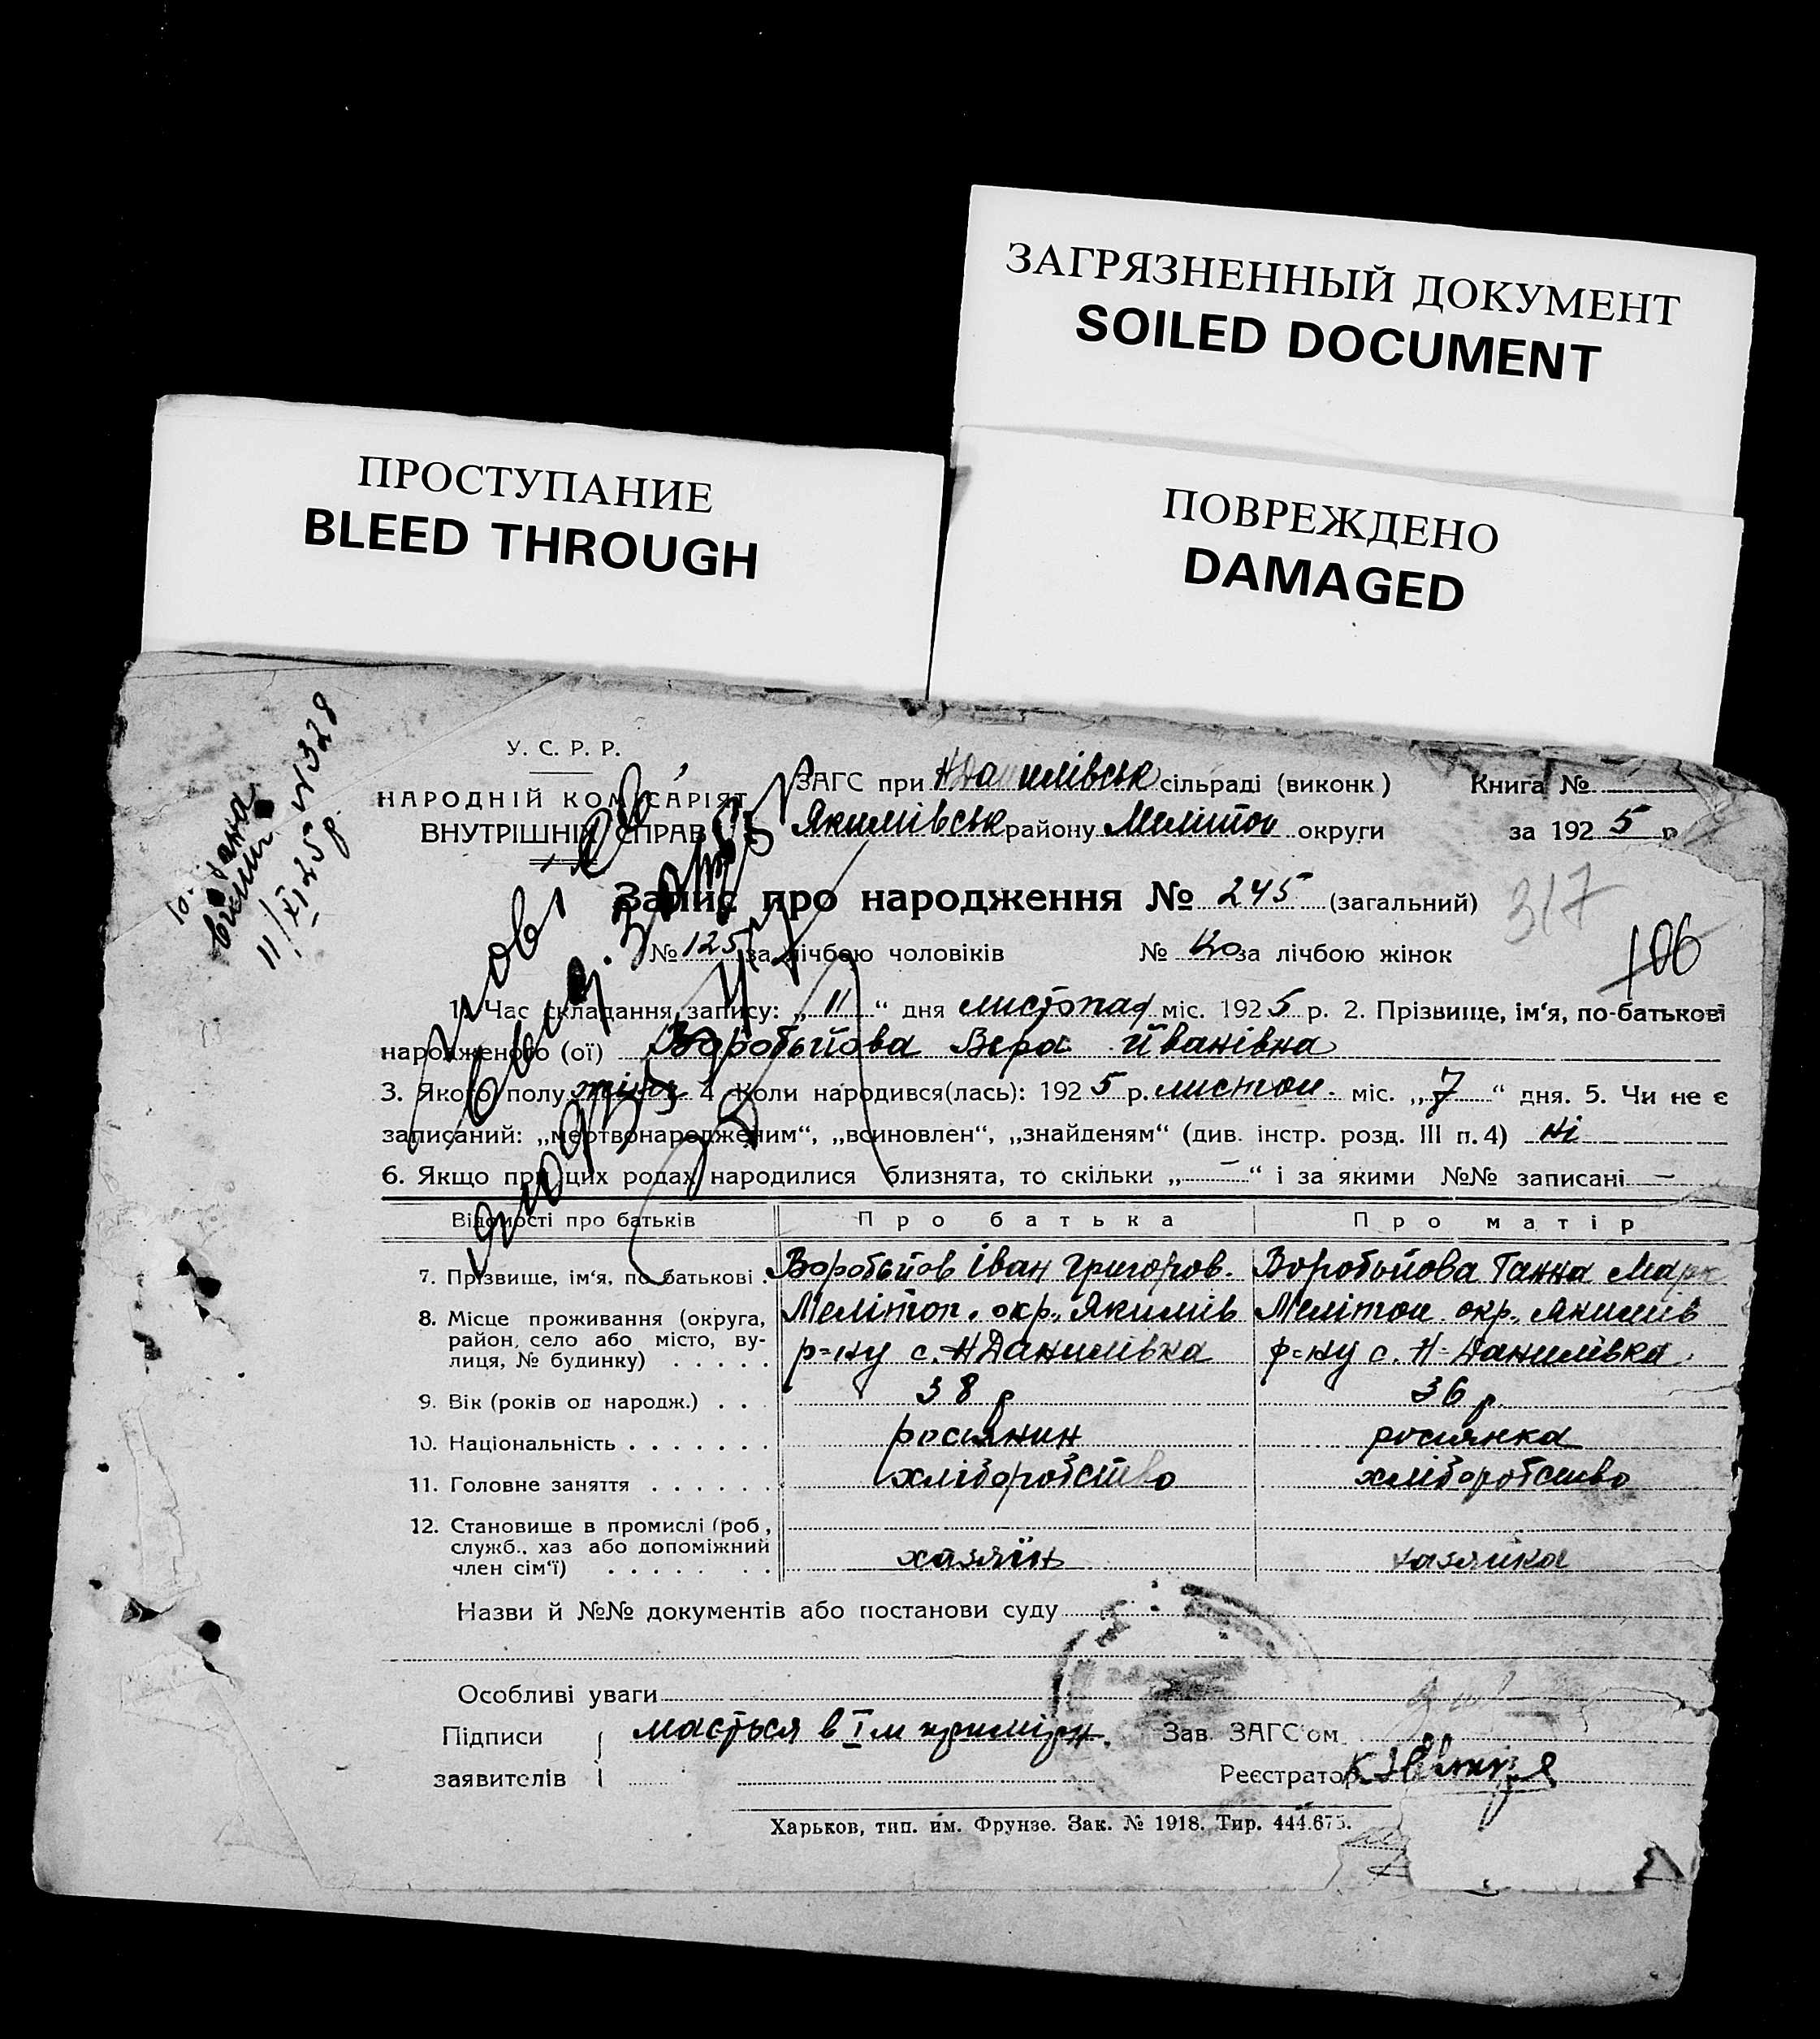 ЗАГРЯЗНЕННЫЙ ДОКУМЕНТ
SOILED DOCUMENT
ПРОСТУПАНИЕ
BLEED THROUGH
ПОВРЕЖДЕНО
DAMAGED
11/XI 25 р. № 328
У. С. Р. Р.
НАРОДНІЙ КОМІСАРІЯТ
ВНУТРІШНІХ СПРАВ
ЗАГС при НДанилівськ сільраді (виконк) Книга №
Якимівськ району Мелітоп округи за 1925 р
Запис про народження № 245 (загальний)
317
№ 125 за лічбою чоловіків № 120 за лічбою жінок
106
1. Час складання запису: „11“ дня листопад міс. 1925 р. 2. Прізвище, ім‘я, по-батькові
народженого (ої) Воробьйова Вєра Йванівна
3. Якого полу жіноч 4. Коли народився(лась): 1925 р. листоп. міс. „7“ дня. 5. Чи не є
записаний: „мертвонародженим“, „всиновлен“, „знайденям“ (див. інстр. розд. III п. 4) ні
6. Якщо при цих родах народилися близнята, то скільки „—“ і за якими №№ записані —
Відомості про батьків Про батька Про матір
7. Прізвище, ім‘я, по батькові. Воробьйов Іван Григоров. Воробьйова Ганна Марк
8. Місце проживання (округа, Мелітоп. окр., Якимів Мелітоп. окр., Якимів
район, село або місто, ву-
лиця, № будинку) р=ну с. НДанилівка р=ну с. Н=Данилівка
9. Вік (років од народж.) 38 р 36 р.
10. Національність росіянин росіянка
11. Головне заняття хліборобство хліборобство
12. Становище в промислі (роб,
служб., хаз або допоміжний
член сім‘ї) хазяїн хазяйка
Назви й №№ документів або постанови суду
Особливі уваги
Підписи мається в І м примірн. Зав. ЗАГС'ом
заявителів Реєстратор
Харьков, тип. им. Фрунзе. Зак. № 1918. Тир. 444.675.